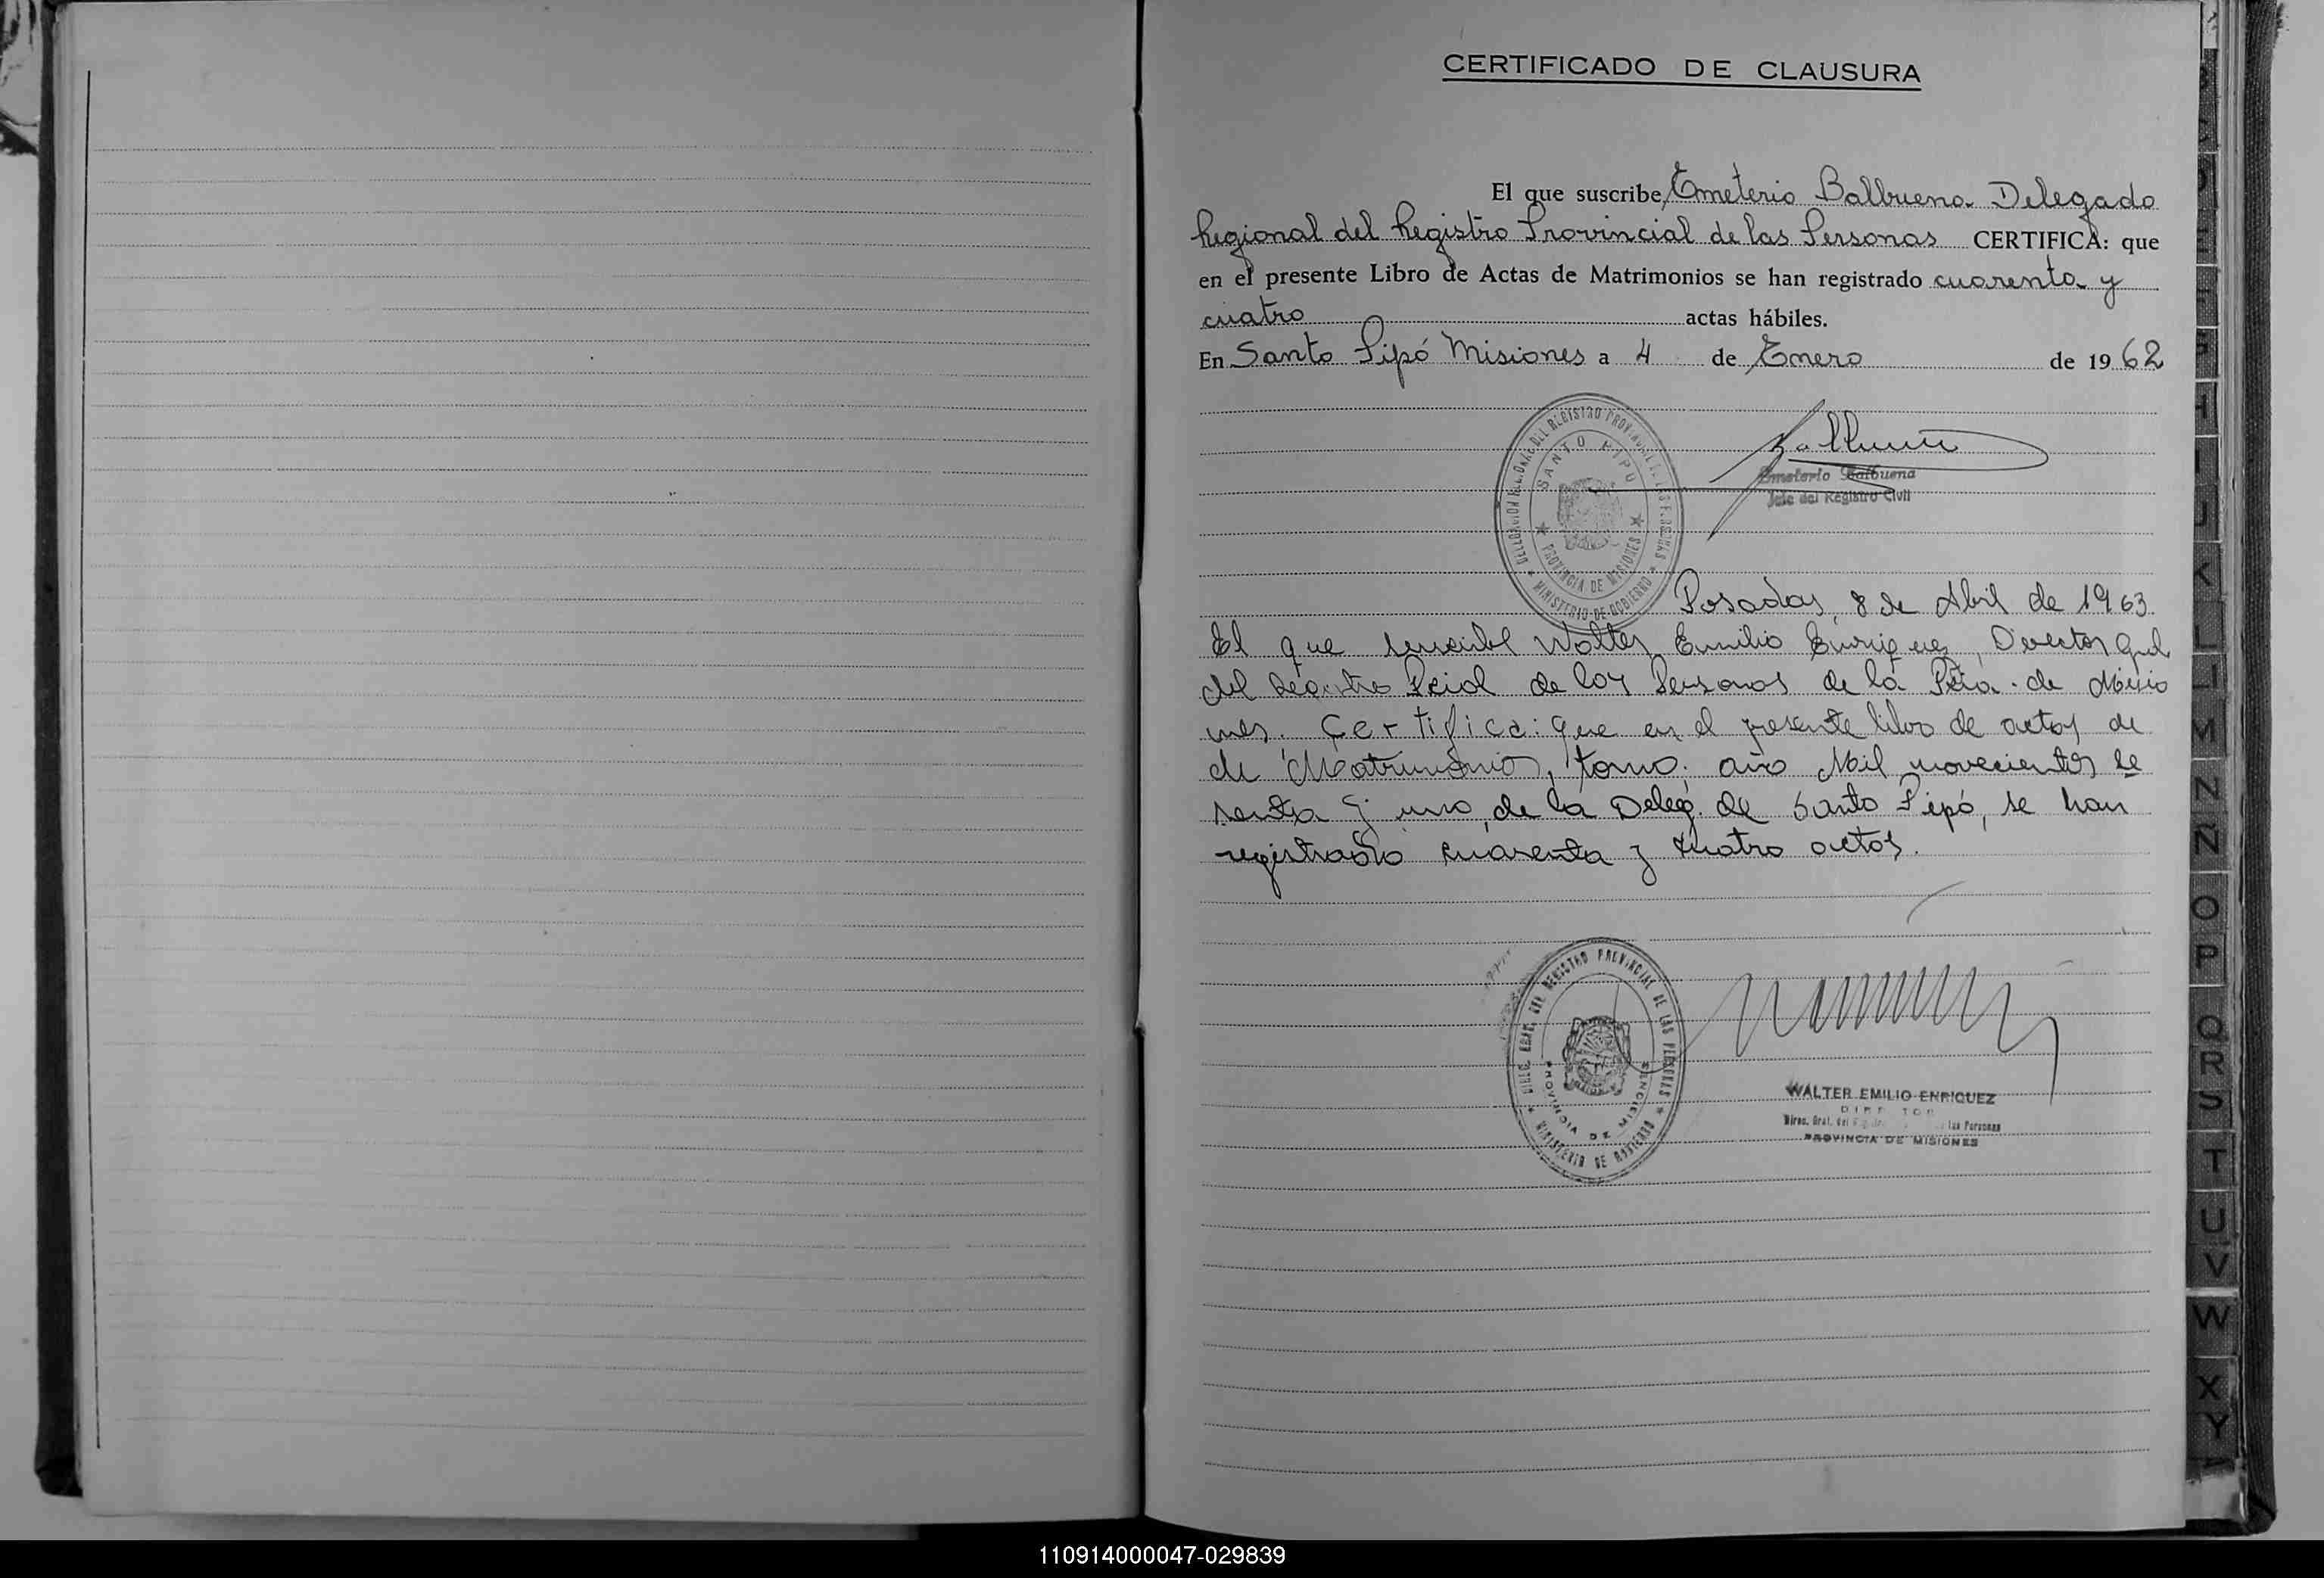 CERTIFICADO DE CLAUSURA
El que suscribe, Emeterio Balbuena Delegado
Regional del Registro Provincial de las Personas CERTIFICA: que
en el presente Libro de Actas de Matrimonios se han registrado cuarenta y
cuatro actas hábiles.
En Santo Pipó Misiones a 4 de Enero de 1962
DELEGACION REGIONAL DEL REGISTRO PROVINCIAL DE LAS PERSONAS
SANTO PIPO
PROVINCIA DE MISIONES
MINISTERIO DE GOBIERNO
Balbuena
Emeterio Balbuena
Jefe del Registro Civil
Posadas, 8 de Abril de 1963.
El que suscribe Walter Emilio Enriquez, Director Gral
del Registro Pcial de las Personas de la Pcia. de Misio
nes. Certifica: que en el presente libro de actas de
de Matrimonios, tomo: año Mil novecientos se
senta y uno, de la Deleg. de Santo Pipó, se han
registrado cuarenta y cuatro actas.
DIREC. GRAL. DEL REGISTRO PROVINCIAL DE LAS PERSONAS
PROVINCIA DE MISIONES
MINISTERIO DE GOBIERNO
WALTER EMILIO ENRIQUEZ
DIRECTOR
Direc. Gral. del las Personas
PROVINCIA DE MISIONES
H
I
J
K
L
LL
M
N
Ñ
O
P
Q
R
S
T
U
V
W
X
Y
110914000047-029839